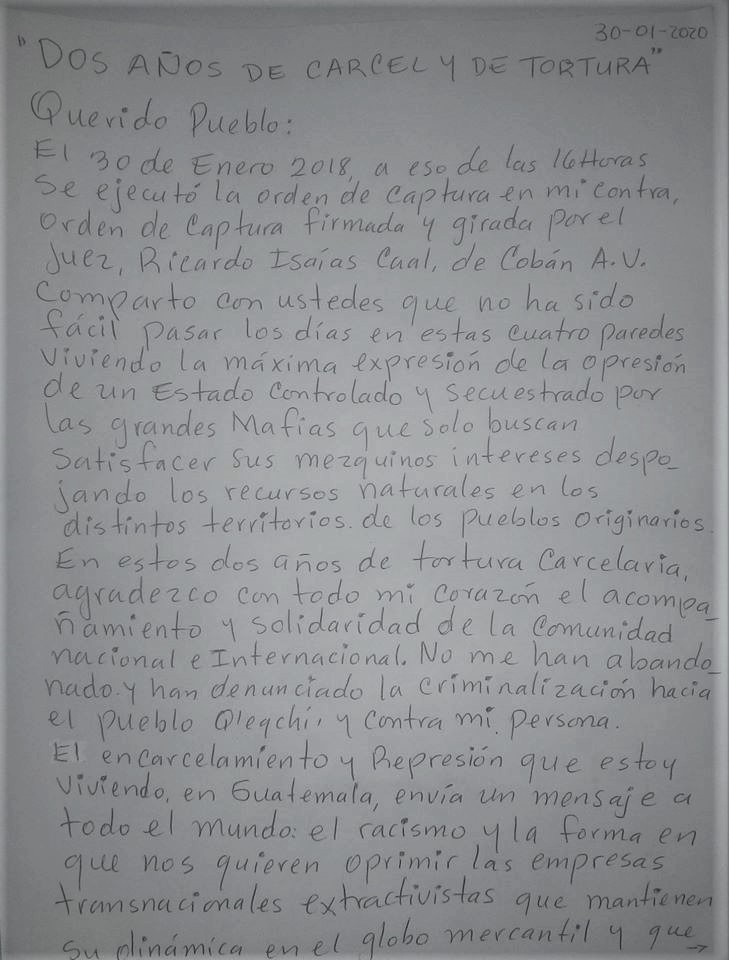 30-01-2020
"DOS AÑOS DE CARCEL Y DE TORTURA"
Querido Pueblo:
El 30 de Enero 2018, a eso de las 16 Horas
Se ejecutó la orden de captura en mi contra,
orden de Captura firmada y girada por el
Juez, Ricardo Isaías Caal, de Cobán A.V.
Comparto con ustedes que no ha sido
fácil pasar los días en estas cuatro paredes
Viviendo la máxima expresión de la opresión
de un Estado Controlado y Secuestrado por
las grandes Mafias que solo buscan
Satisfacer sus mezquinos intereses despo_
jando los recursos naturales en los
distintos territorios. de los pueblos originarios.
En estos dos años de tortura Carcelaria,
agradezco con todo mi corazón el acompa_
ñamiento y solidaridad de la Comunidad
nacional e Internacional. No me han abando_
nado. y han denunciado la Criminalización hacia
el pueblo Q'eqchi', y Contra mi persona.
El encarcelamiento y Represión que estoy
Viviendo, en Guatemala, envía un mensaje a
todo el mundo: el racismo y la forma en
que nos quieren oprimir las empresas
transnacionales extractivistas que mantienen
su dinámica en el globo mercantil y que →